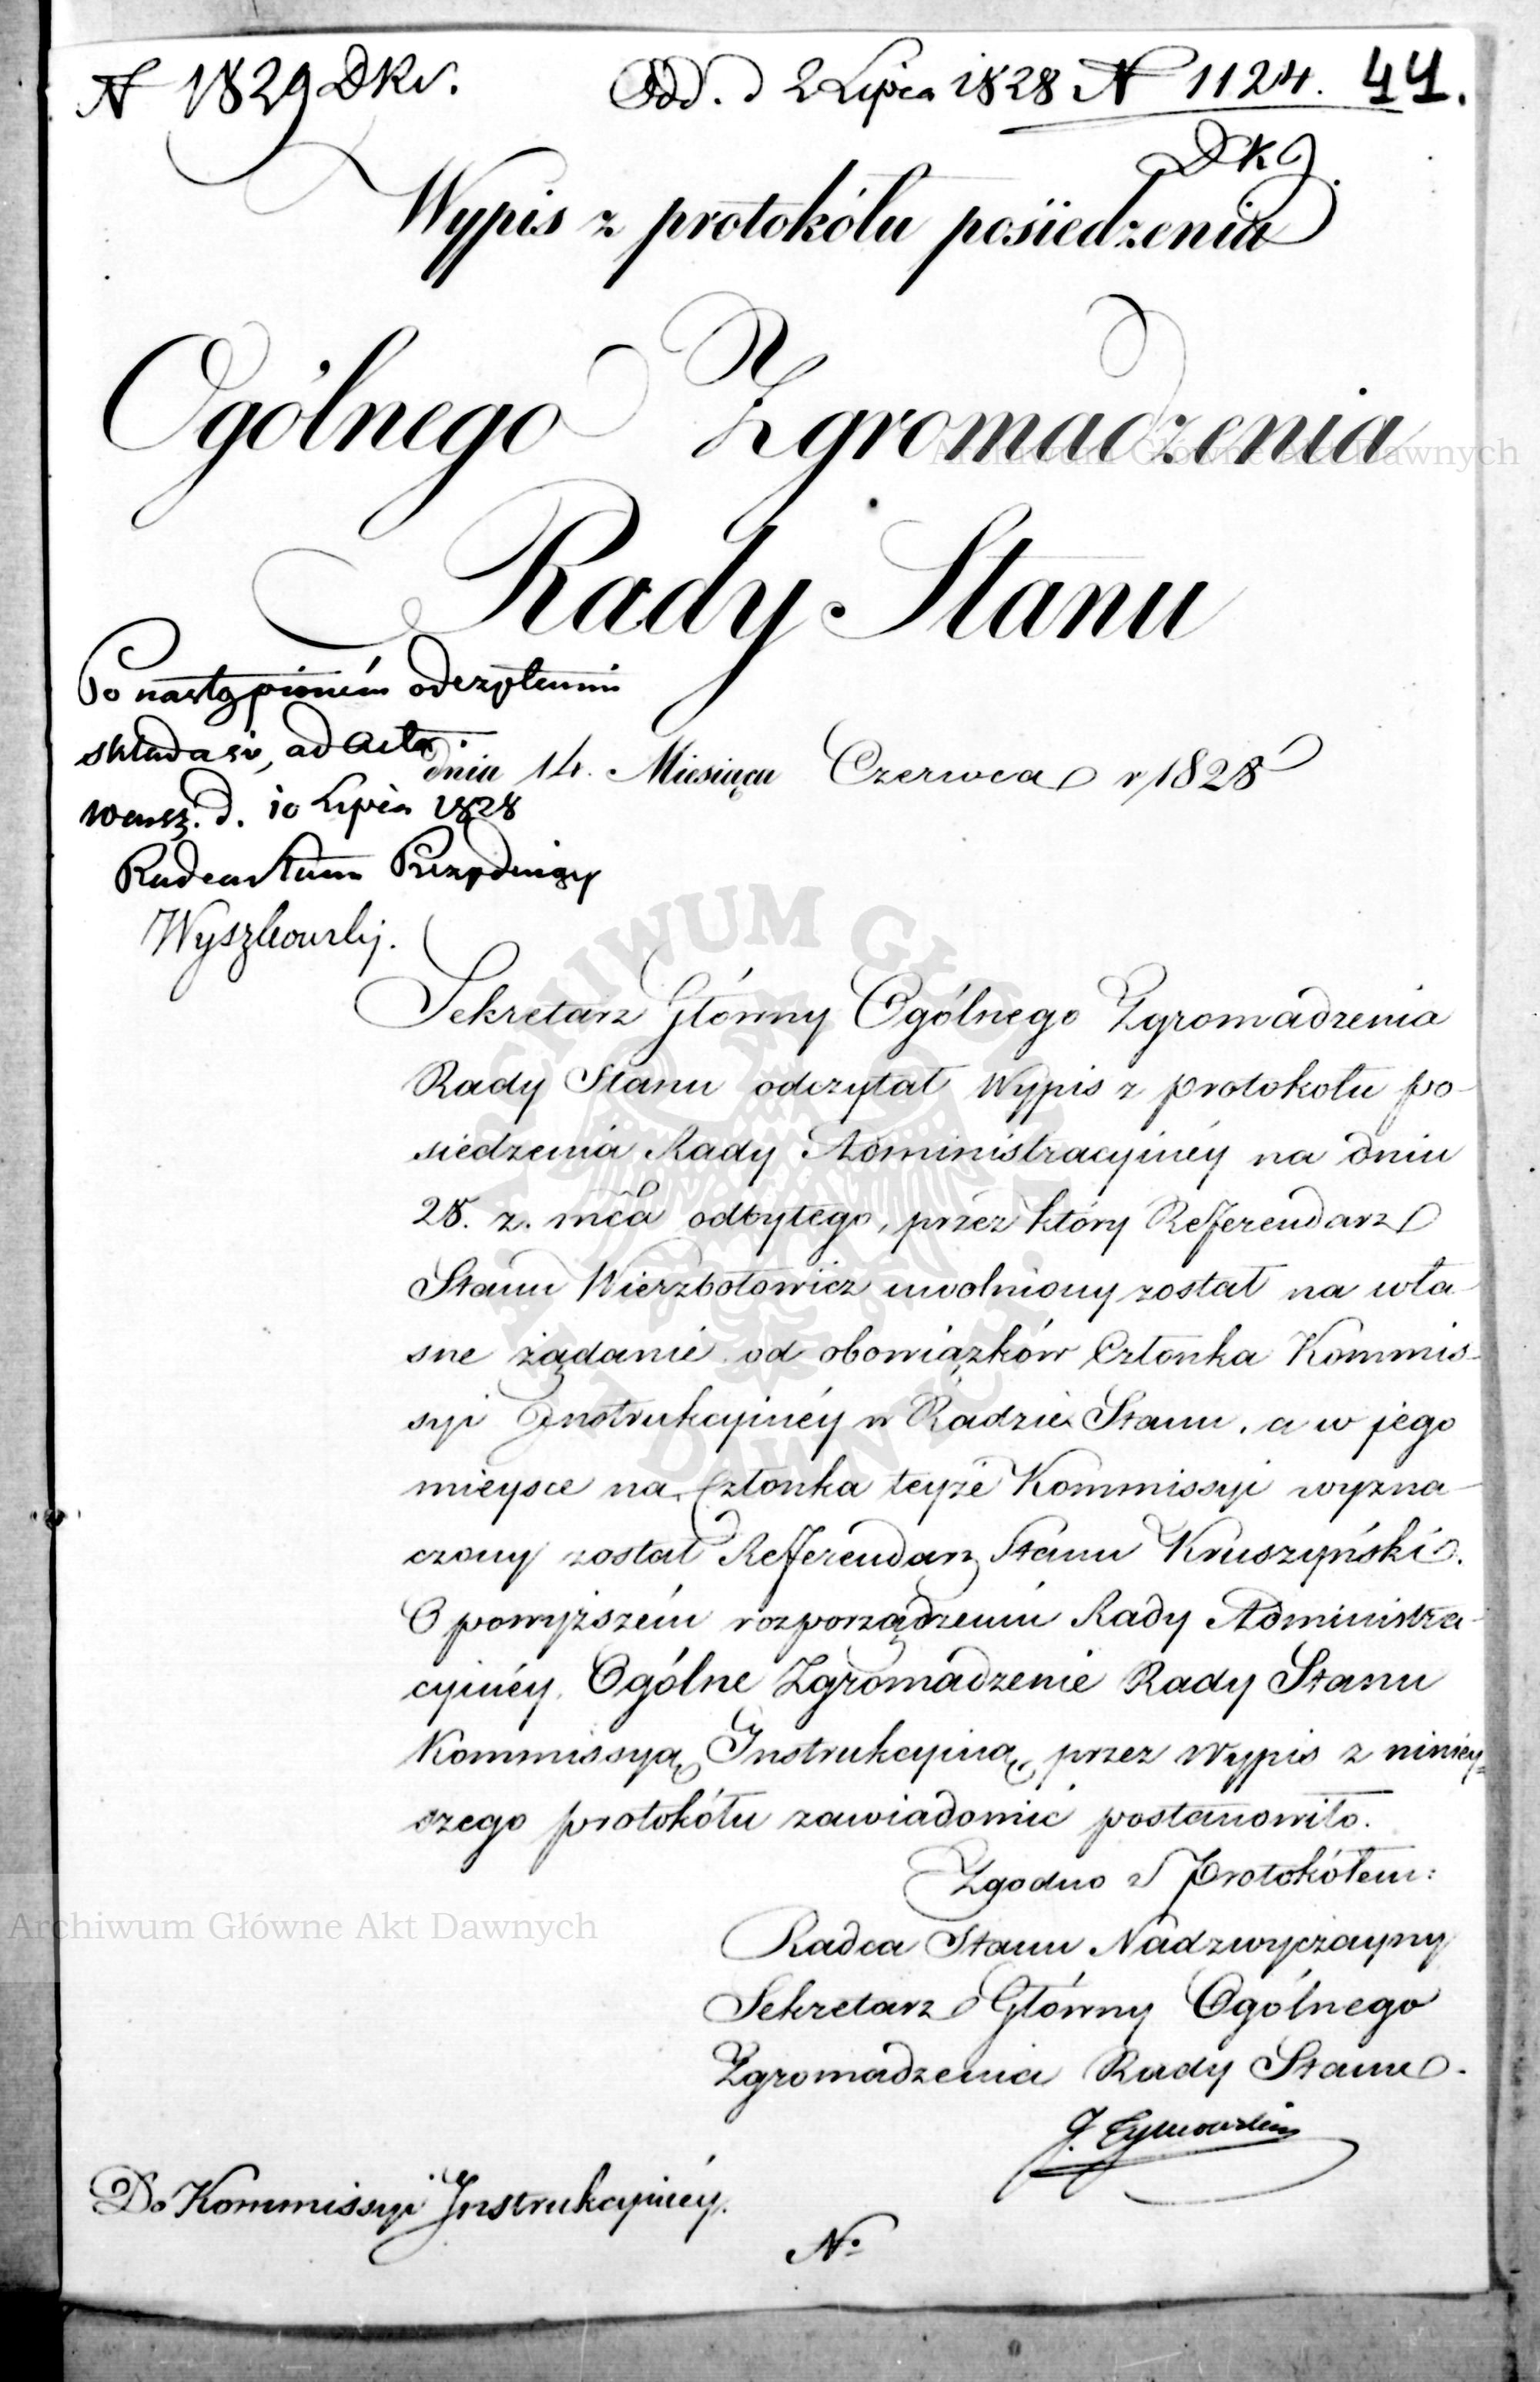 N 1829 DKv.
Odd. d 2 Lipca 1828 N 1124. 44.
DKJ.
Wypis z protokółu posiedzenia
Ogólnego Zgromadzenia
Rady Stanu
Po nastąpioném odczytaniu
składa się ad acta
Warsz. d. 10 Lipca 1828
Radca Stanu Prezydujący
Wyszkowski.
dnia 14. Miesiąca Czerwca r 1828
Sekretarz Główny Ogólnego Zgromadzenia
Rady Stanu odczytał Wypis z protokołu po-
siedzenia Rady Administracyinéy na dniu
28. z. mca odbytego, przez który Refferendarz
Stanu Wierzbołowicz uwolniony został na wła-
sne żądanie od obowiązków Członka Kommis-
syi Instrukcyinéy w Radzie Stanu, a w jego
mieysce na Członka teyże Kommissyi wyzna-
czony został Refferendarz Stanu Kruszyński.
O powyższém rozporządzeniu Rady Administra-
cyinéy, Ogólne Zgromadzenie Rady Stanu
Kommissyą Instrukcyiną, przez Wypis z niniey-
szego protokółu zawiadomić postanowiło.
Zgodno z Protokółem:
Radca Stanu Nadzwyczayny
Sekretarz Główny Ogólnego
Zgromadzenia Rady Stanu.
J. Tymowski
Do Kommissyi Instrukcyinéy.
No
Archiwum Główne Akt Dawnych
Archiwum Główne Akt Dawnych
ARCHIWUM GŁÓWNE AKT DAWNYCH